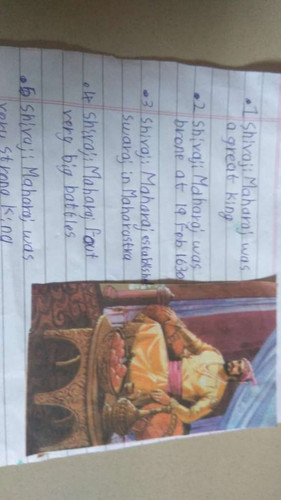 •1 Shivaji Maharaj was
a great king
•2 Shivaji Maharaj was
brone at 19 Feb 1630
•3 Shivaji Maharaj establish
swaraj in Maharastra
•4 Shivaji Maharaj Fout
very big battles
•5 Shivaji Maharaj was
very strong king